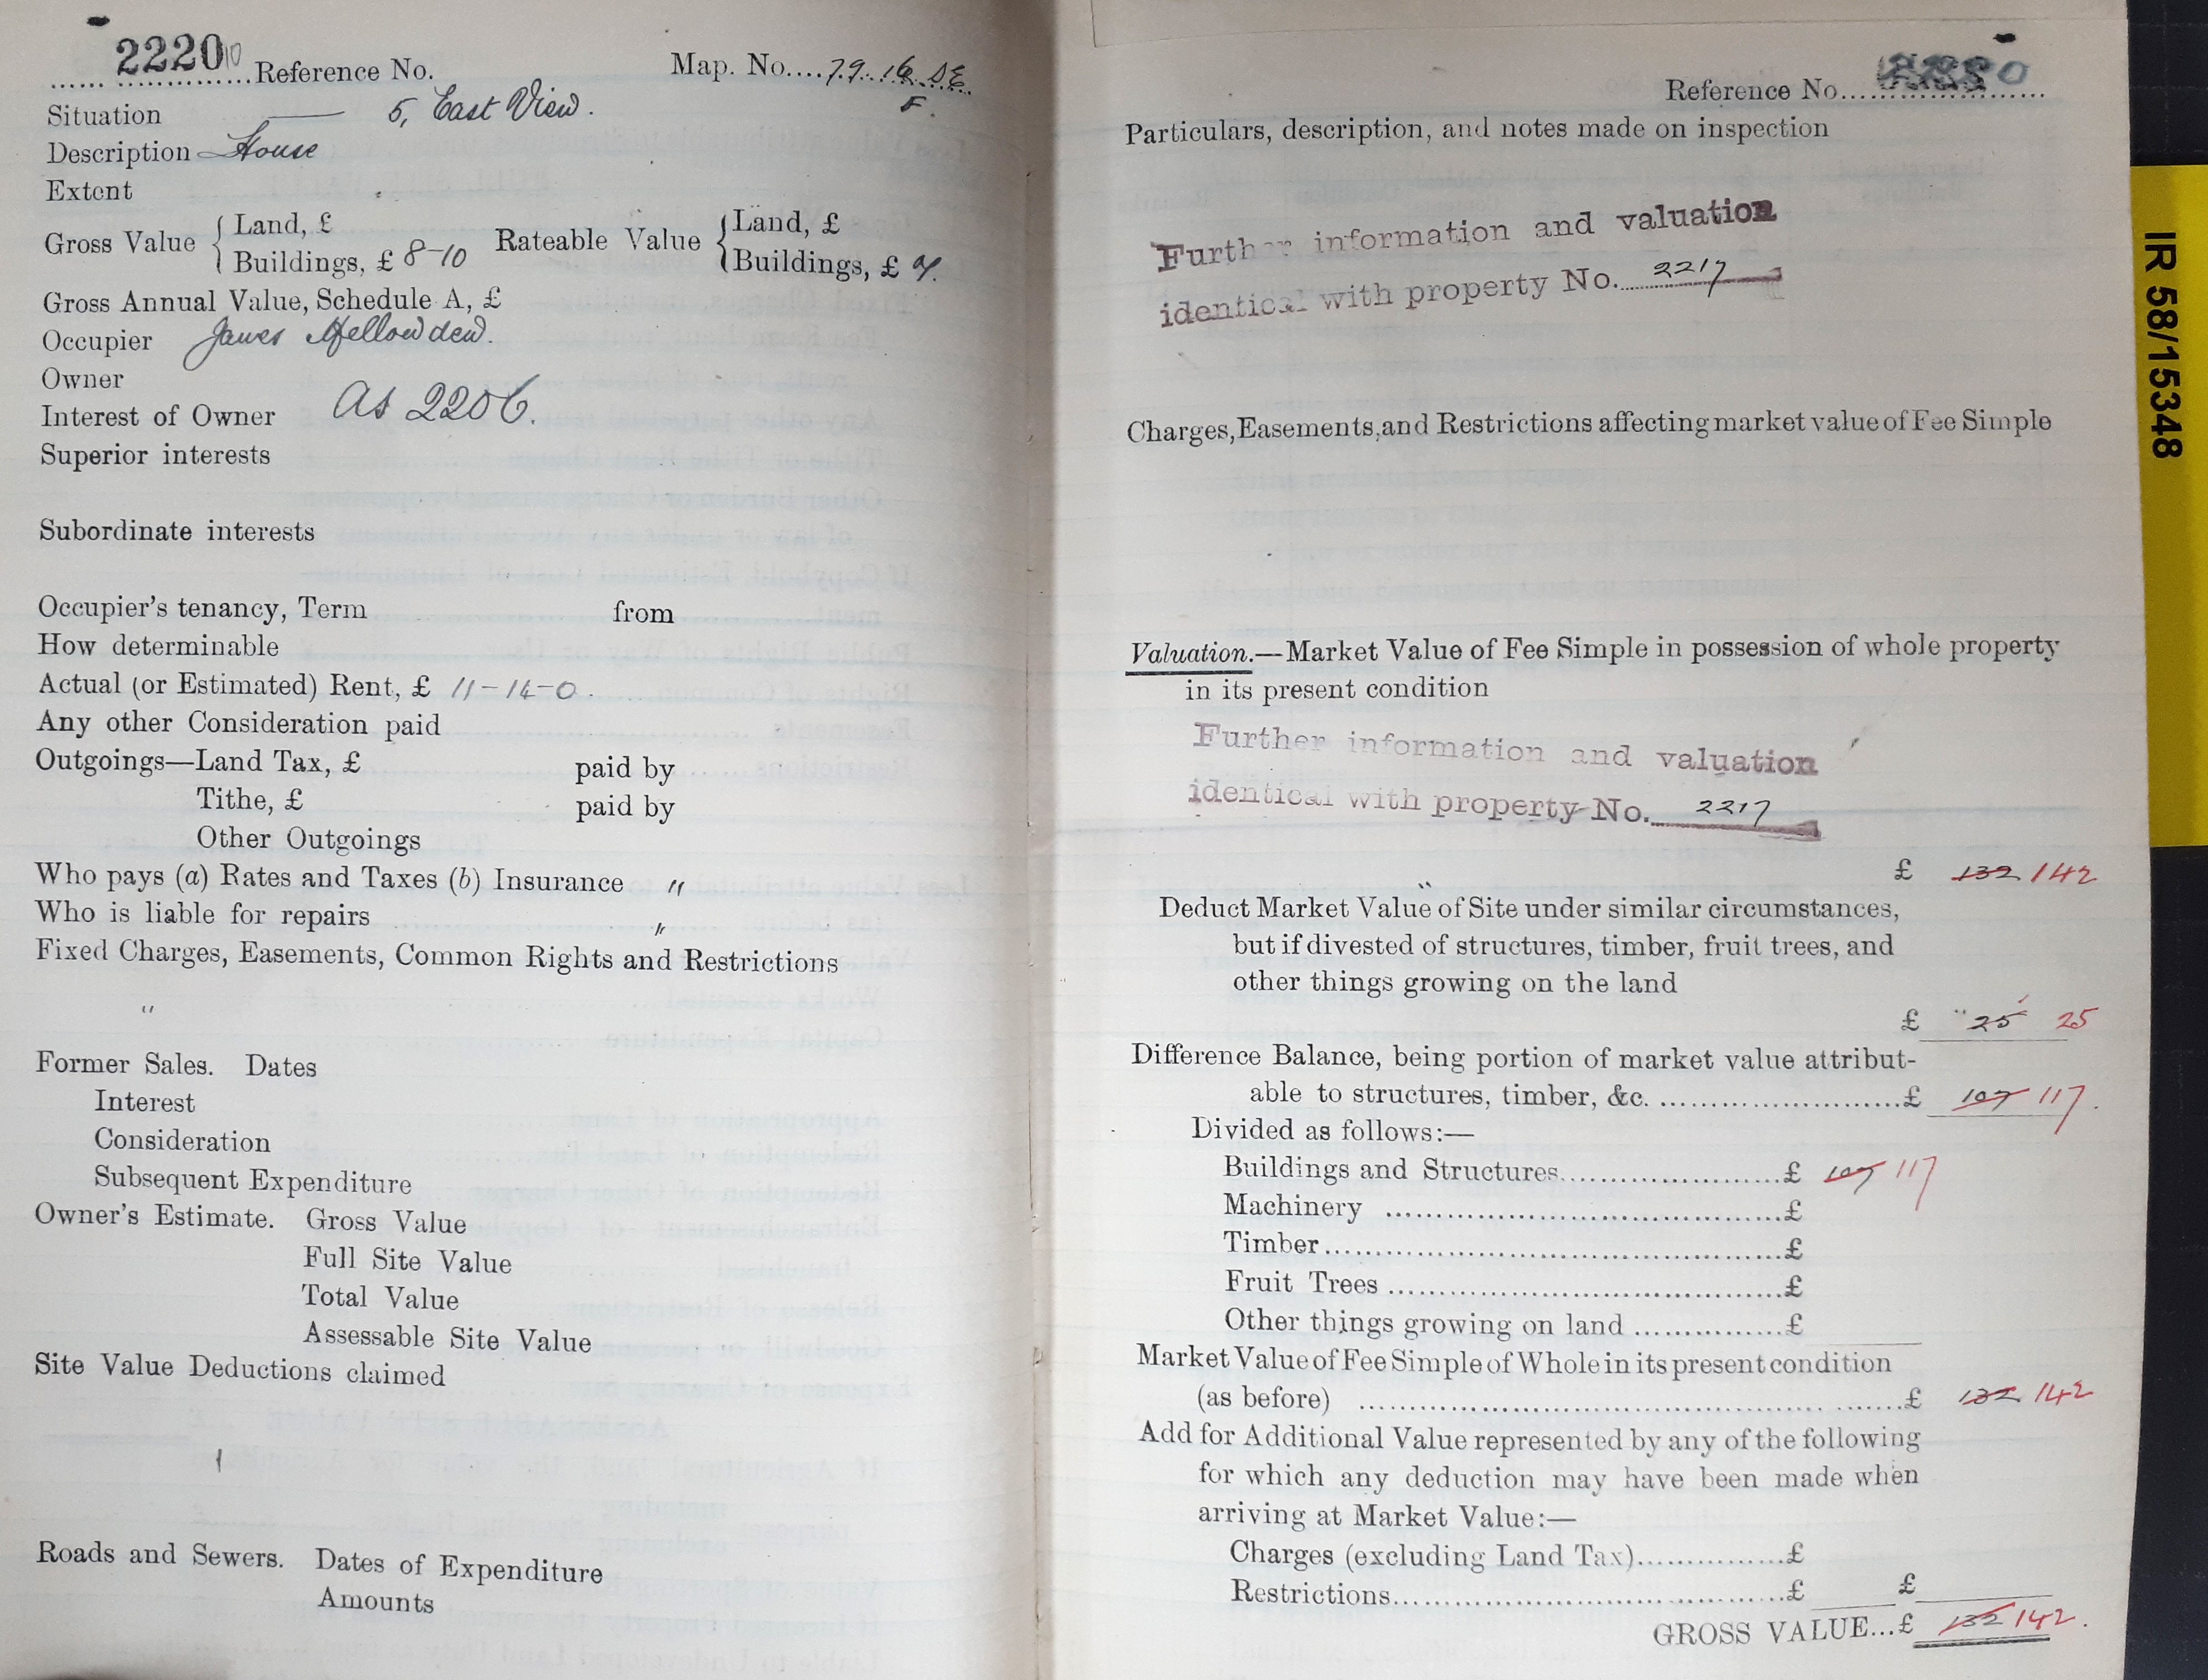 2220 10 Reference No. Map. No. 79. 16 SE
F.
Situation — 5, East View.
Description House
Extent
Gross Value { Land, £ Rateable Value { Land, £
Buildings, £ 8-10 Buildings, £
Gross Annual Value, Schedule A, £
Occupier James Mellowdew.
Owner
Interest of Owner As 2206.
Superior interests
Subordinate interests
Occupier's tenancy, Term from
How determinable
Actual (or Estimated) Rent, £ 11-14-0.
Any other Consideration paid
Outgoings—Land Tax, £ paid by
Tithe, £ paid by
Other Outgoings
Who pays (a) Rates and Taxes (b) Insurance "
Who is liable for repairs "
Fixed Charges, Easements, Common Rights and Restrictions
"
Former Sales. Dates
Interest
Consideration
Subsequent Expenditure
Owner's Estimate. Gross Value
Full Site Value
Total Value
Assessable Site Value
Site Value Deductions claimed
Roads and Sewers. Dates of Expenditure
Amounts
Reference No. 2220
Particulars, description, and notes made on inspection
Further information and valuation
identical with property No. 2217
Charges, Easements, and Restrictions affecting market value of Fee Simple
Valuation.—Market Value of Fee Simple in possession of whole property
in its present condition
Further information and valuation
identical with property No. 2217
£ 132 142
Deduct Market Value of Site under similar circumstances,
but if divested of structures, timber, fruit trees, and
other things growing on the land
£ 25 25
Difference Balance, being portion of market value attribut-
able to structures, timber, &c. £ 107 117.
Divided as follows:—
Buildings and Structures £ 107 117
Machinery £
Timber £
Fruit Trees £
Other things growing on land £
Market Value of Fee Simple of Whole in its present condition
(as before) £ 132 142
Add for Additional Value represented by any of the following
for which any deduction may have been made when
arriving at Market Value:—
Charges (excluding Land Tax) £
Restrictions £ £
GROSS VALUE...£ 132 142.
IR 58/15348